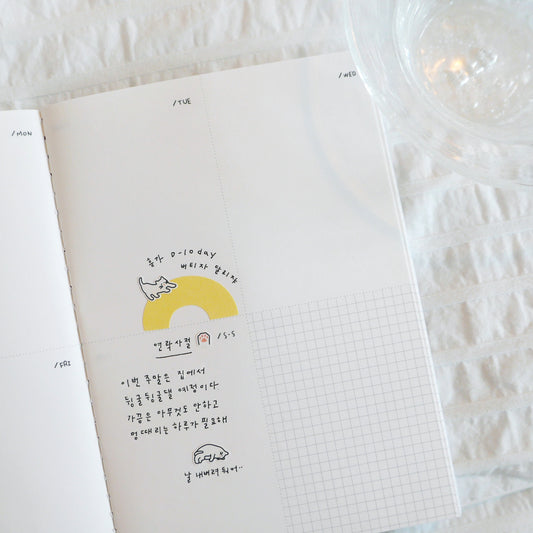 /MON
/TUE
/WED
휴가 D-10day
버티자 말리야
/FRI
연락사절
/S·S
이번 주말은 집에서
뒹굴뒹굴댈 예정이다
가끔은 아무것도 안하고
멍때리는 하루가 필요해
날 내버려둬어..